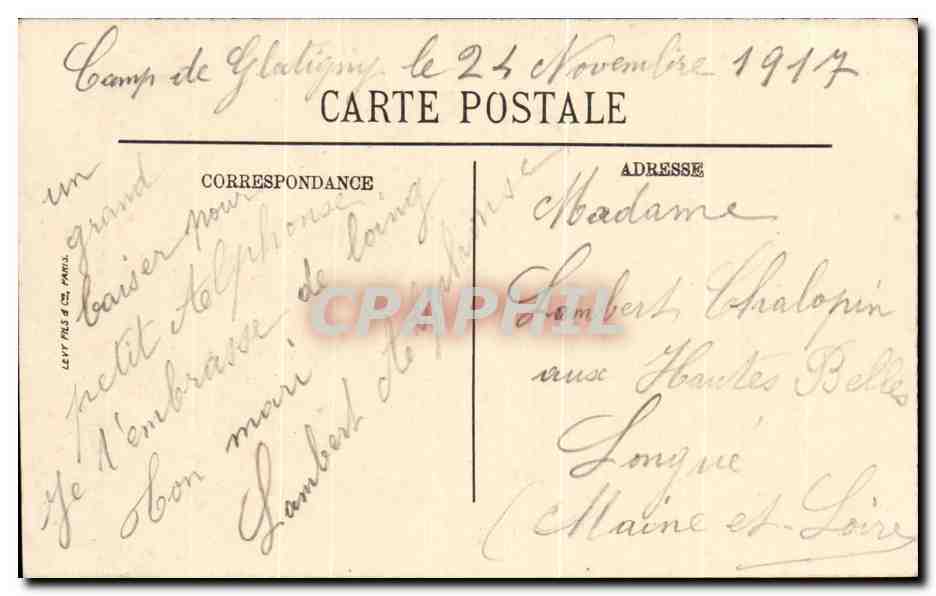 Camp de Glatigny le 24 Novembre 1917
CARTE POSTALE
CORRESPONDANCE
un
grand
baiser pour
petit Alphonse.
Je t'embrasse de loing
ton mari
Lambert Alphonse
LEVY FILS & Cie, PARIS.
ADRESSE
Madame
Lambert Chalopin
aux Hautes Belles
Longué
(Maine et-Loire
CPARPHIL